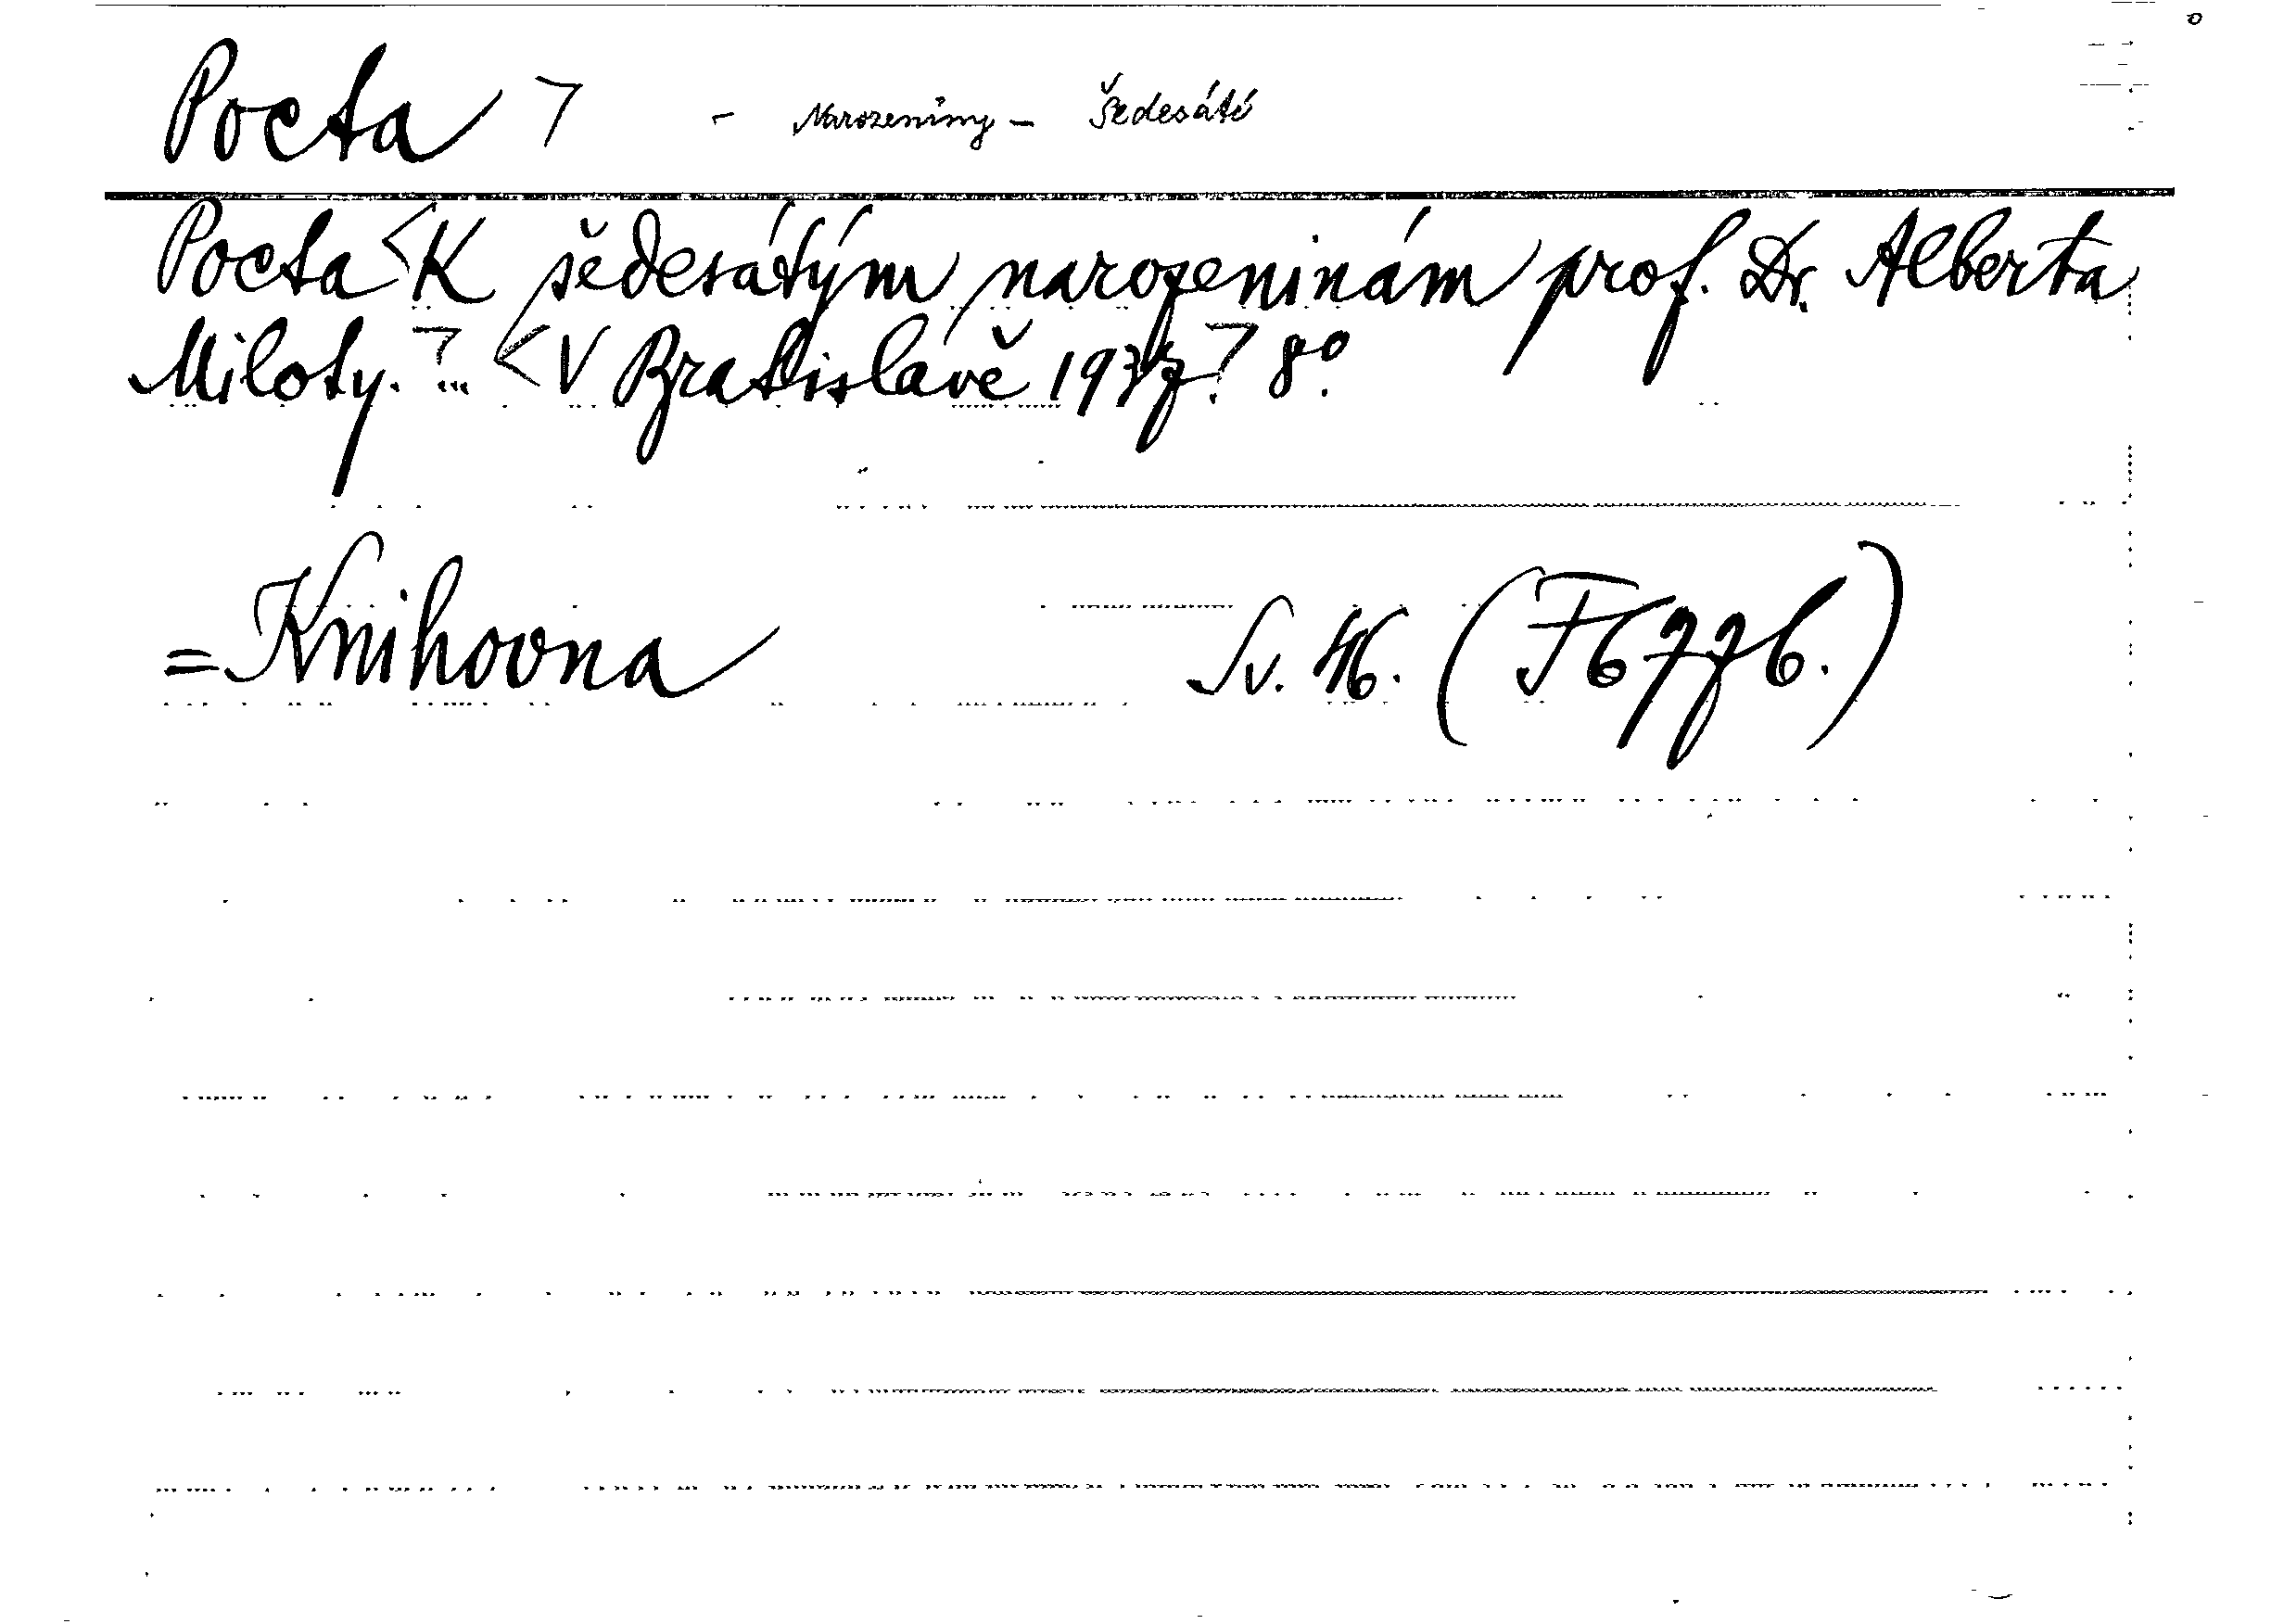 Pocta ⁊ - Narozeniny - Šedesáté
Pocta <K šedesátým narozeninám prof. Dr. Alberta
Miloty.⁊... <V Bratislavě 1937⁊. 8°.
=Knihovna Sv. 46. (F6776.)